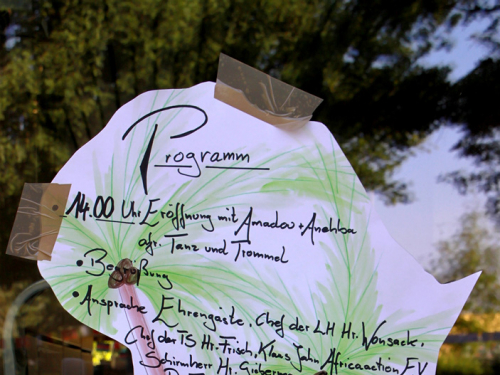 Programm
• 14.00 Uhr Eröffnung mit Amadou + Anahba
afr. Tanz und Trommel
• Begrüßung
• Ansprache Ehrengäste, Chef der LH Hr. Wonsack,
Chef der TS Hr. Frisch, Klaus Jahn Africaaction EV
Schirmherr Hr.